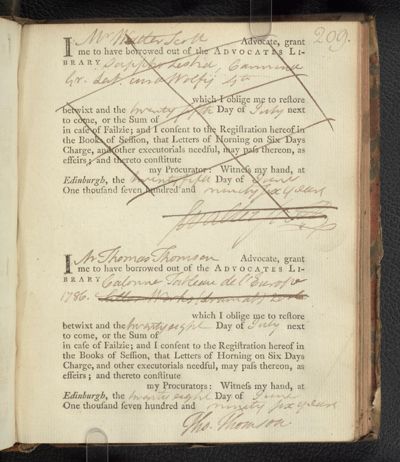 209.
I Mr Walter Scott Advocate, grant
me to have borrowed out of the ADVOCATES LI-
BRARY Sappho Lesbia, Carmina
Gr. Lat. cura Wolfij 4to
which I oblige me to reſtore
betwixt and the twenty Day of July next
to come, or the Sum of
in caſe of Failzie; and I conſent to the Regiſtration hereof in
the Books of Seſſion, that Letters of Horning on Six Days
Charge, and other executorials needful, may paſs thereon, as
effeirs; and thereto conſtitute
my Procurators: Witneſs my hand, at
Edinburgh, the Day of June
One thouſand ſeven hundred and ninety six years
Walter Scott
I Mr Thomas Thomson Advocate, grant
me to have borrowed out of the ADVOCATES LI-
BRARY Calonne Tableau de l'Europe
1786.
which I oblige me to reſtore
betwixt and the twenty eight Day of July next
to come, or the Sum of
in caſe of Failzie; and I conſent to the Regiſtration hereof in
the Books of Seſſion, that Letters of Horning on Six Days
Charge, and other executorials needful, may paſs thereon, as
effeirs; and thereto conſtitute
my Procurators: Witneſs my hand, at
Edinburgh, the twenty eight Day of June
One thouſand ſeven hundred and ninety six years
Tho. Thomson